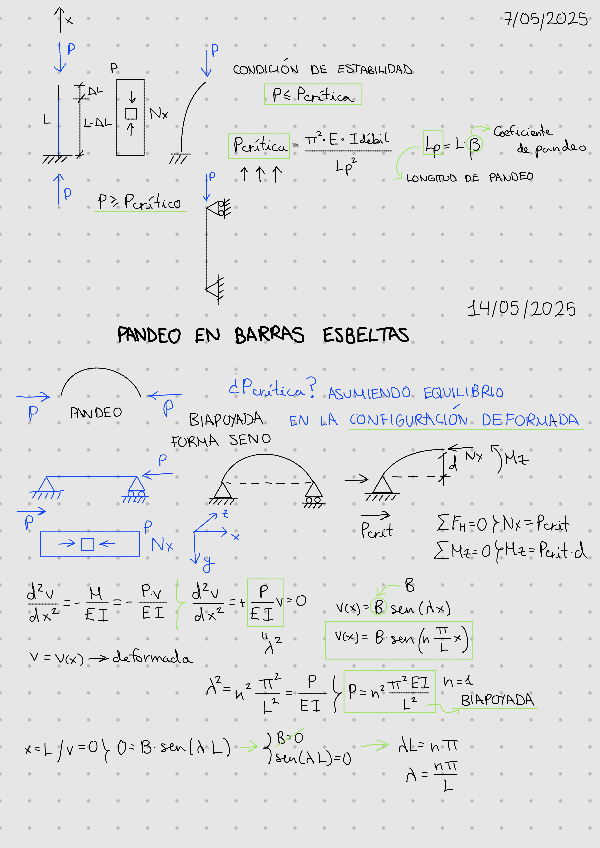 7/05/2025
x
P
P
P
ΔL
L
L-ΔL
Nx
P
CONDICIÓN DE ESTABILIDAD
P ≤ Pcrítica
Pcrítica = π²·E·Idébil / Lp²
Lp = L·β
Coeficiente de pandeo
LONGITUD DE PANDEO
P ≥ Pcrítico
P
14/05/2025
PANDEO EN BARRAS ESBELTAS
P
PANDEO
P
¿Pcrítica? ASUMIENDO EQUILIBRIO
EN LA CONFIGURACIÓN DEFORMADA
BIAPOYADA
FORMA SENO
P
P
P
Nx
z
x
y
d
Nx
Mz
Pcrit
ΣFH=0 } Nx = Pcrit
ΣMz=0 } Mz = Pcrit·d
d²v/dx² = -M/EI = -P·v/EI } d²v/dx² = + P/EI v = 0
λ²
B
v(x) = B sen(λx)
v(x) = B·sen(n π/L x)
v = v(x) → deformada
λ² = n² π²/L² = P/EI } P = n² π²EI/L² n=1
BIAPOYADA
x=L / v=0 } 0 = B·sen(λL) → } B=0
sen(λL)=0 → λL = nπ
λ = nπ/L